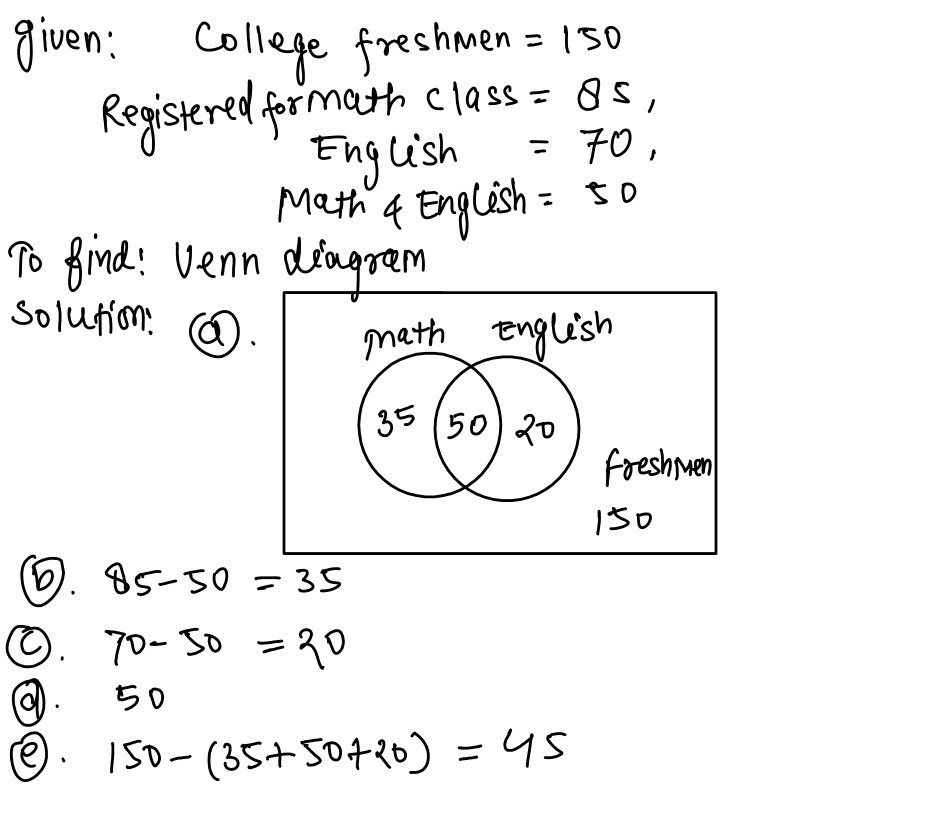 given: College freshmen = 150
Registered for math class = 85,
English = 70,
Math & English = 50
To find: Venn diagram
Solution: (a).
Math English
35 50 20
freshmen
150
(b). 85-50 = 35
(c). 70-50 = 20
(d). 50
(e). 150-(35+50+20) = 45